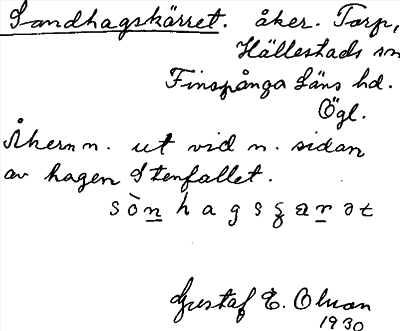 Sandhagskärret. åker. Torp,
Hällestads sn
Finspånga Läns hd.
Ögl.
Åkern n. ut vid n. sidan
av hagen Stenfallet.
Gustaf E. Olson
1930